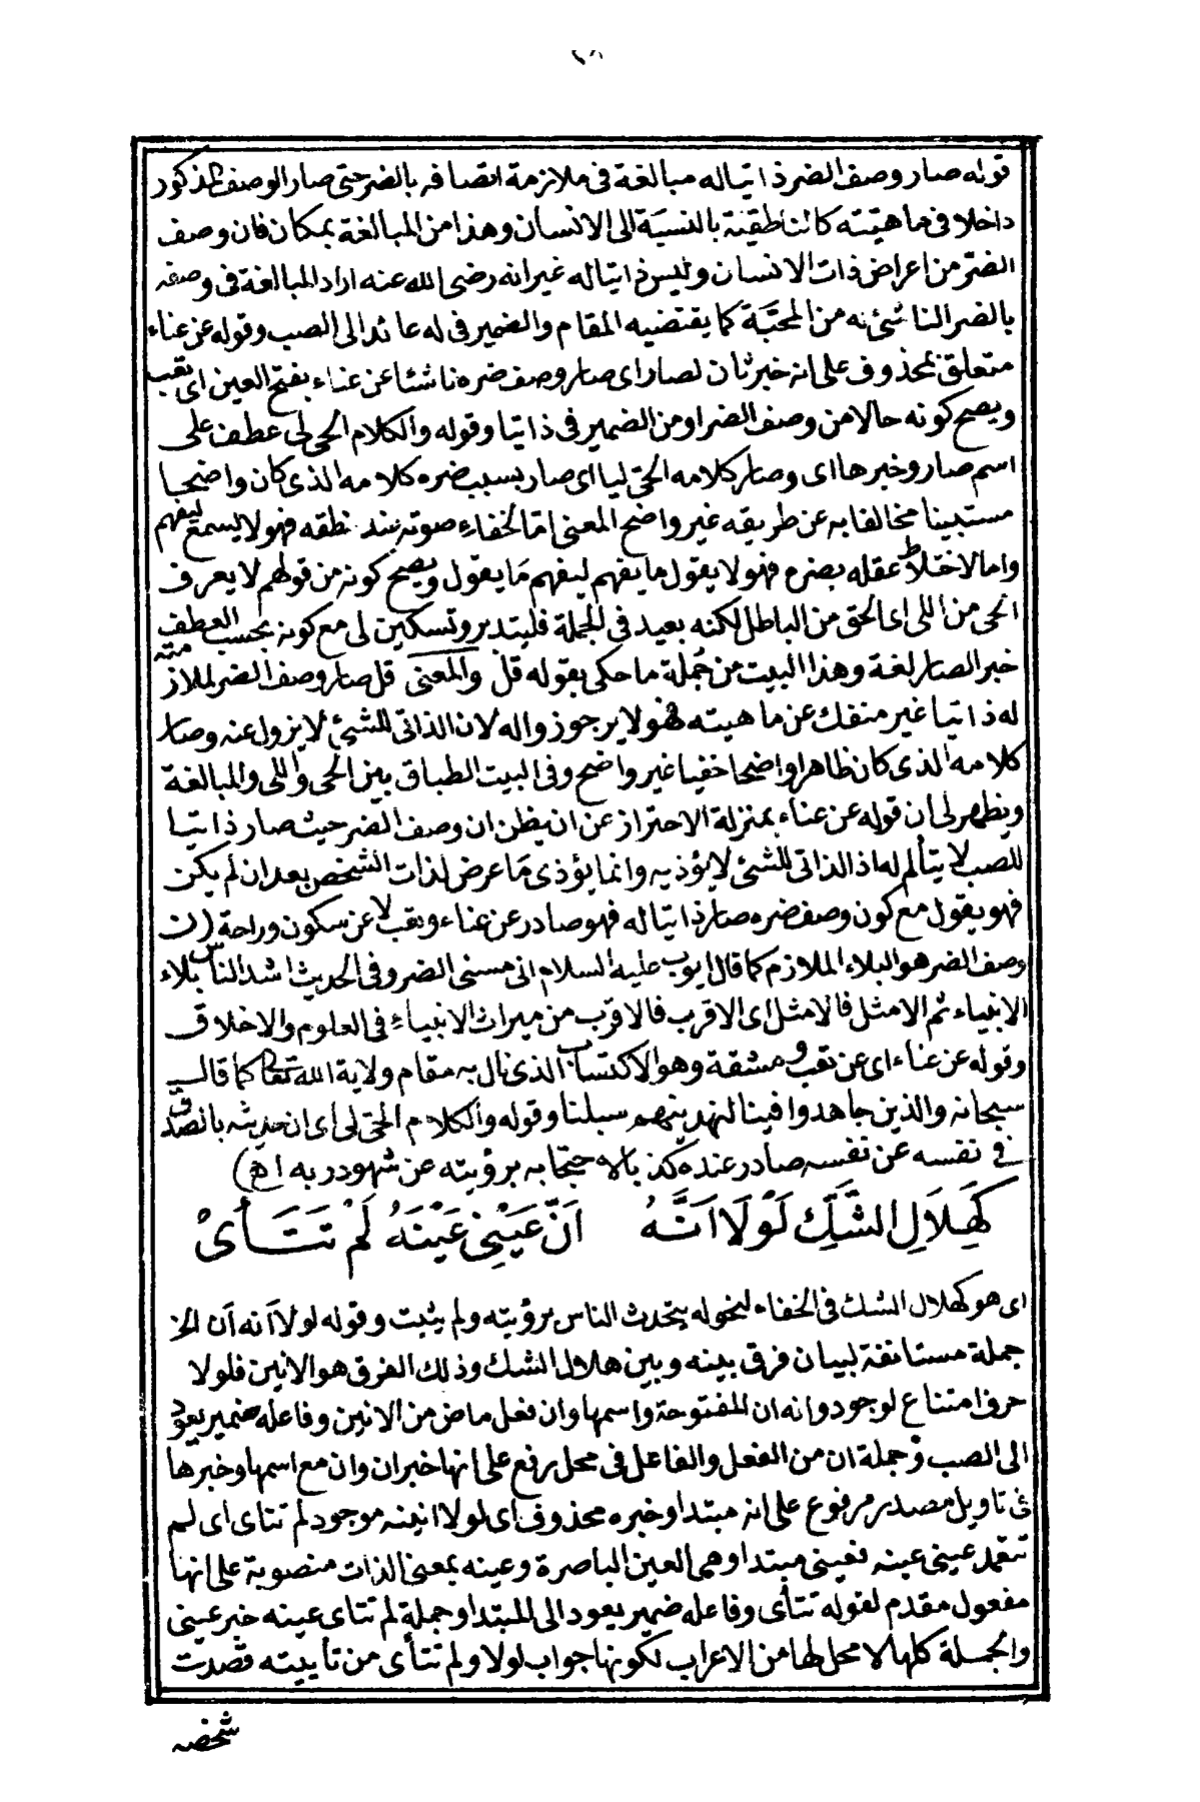 ٢٨
قوله صار وصف الضر ذاتيا له مبالغة فى ملازمة اتصافه بالضر حتى صار الوصف المذكور
داخلا فى ماهيته كالناطقية بالنسبة الى الانسان وهذا من المبالغة بمكان فان وصف
الضر من اعراض ذات الانسان وليس ذاتيا له غير انه رضى الله عنه اراد المبالغة فى وصفه
بالضر الناشئ له من المحبة كما يقتضيه المقام والضمير فى له عائد الى الصب وقوله عن عناء
متعلق بمحذوف على انه خبر ثان لصار اى صار وصف ضره ناشئا عن عناء بفتح العين اى تعب
ويصح كونه حالا من وصف الضر او من الضمير فى ذاتيا وقوله والكلام الحى لى عطف على
اسم صار وخبرها اى وصار كلامه الحى ليا اى صار بسبب ضره كلامه الذى كان واضحا
مستبينا مخالفا به عن طريقه غير واضح المعنى اما لخفاء صوته عند نطقه فهو لا يسمع ليفهم
واما لاختلاط عقله بضره فهو لا يقول ما يفهم ليفهم ما يقول ويصح كونه من قولهم لا يعرف
الحى من اللى اى الحق من الباطل لكنه بعيد فى الجملة فليتدبر وتسكين لى مع كونه بحسب العطف
خبر الصار لغة وهذا البيت من جملة ما حكى بقوله قل والمعنى قل صار وصف الضر لملازمته
له ذاتيا غير منفك عن ماهيته فهو لا يرجو زواله لان الذاتى للشئ لا يزول عنه وصار
كلامه الذى كان ظاهرا واضحا خفيا غير واضح وفى البيت الطباق بين الحى واللى والمبالغة
ويظهر لى ان قوله عن عناء بمنزلة الاحتراز عن ان يظن ان وصف الضر حيث صار ذاتيا
للصب لا يتألم له اذ الذاتى للشئ لا يؤذيه وانما يؤذى ما عرض لذات الشخص بعد ان لم يكن
فهو يقول مع كون وصف ضره صار ذاتيا له فهو صادر عن عناء وتعب لا عن سكون وراحة (ن
وصف الضر هو البلاء الملازم كما قال ايوب عليه السلام انى مسنى الضر وفى الحديث اشد الناس بلاء
الانبياء ثم الامثل فالامثل اى الاقرب فالاقرب من ميراث الانبياء فى العلوم والاخلاق
وقوله عن عناء اى عن تعب ومشقة وهو الاكتساب الذى نال به مقام ولاية الله تعالى كما قال
سبحانه والذين جاهدوا فينا لنهدينهم سبلنا وقوله والكلام الحى لى اى ان حديثه بالصدق
فى نفسه عن نفسه صادر عنده كذبا لاحتجابه برؤيته عن شهود ربه اهـ)
كَهِلَالِ الشَّكِّ لَوْلَا اَنَّهُ اَنَّ عَيْنِى عَيْنَهُ لَمْ تَتَأَىْ
اى هو كهلال الشك فى الخفاء لنحوله يتحدث الناس برؤيته ولم يثبت وقوله لولا انه ان الخ
جملة مستانفة لبيان فرق بينه وبين هلال الشك وذلك الفرق هو الانين فلولا
حرف امتناع لوجود وانه ان المفتوحة واسمها وان فعل ماض من الانين وفاعله ضمير يعود
الى الصب وجملة ان من الفعل والفاعل فى محل رفع على انها خبر ان وان مع اسمها وخبرها
فى تاويل مصدر مرفوع على انه مبتدا وخبره محذوف اى لولا انينه موجود لم تتاى اى لم
تتعمد عينى عينه فعينى مبتدا وهى العين الباصرة وعينه بمعنى الذات منصوبة على انها
مفعول مقدم لقوله تتأى وفاعله ضمير يعود الى المبتدا وجملة لم تتاى عينه خبر عينى
والجملة كلها لا محل لها من الاعراب لكونها جواب لولا ولم تتأى من تأييته قصدت
شخصه